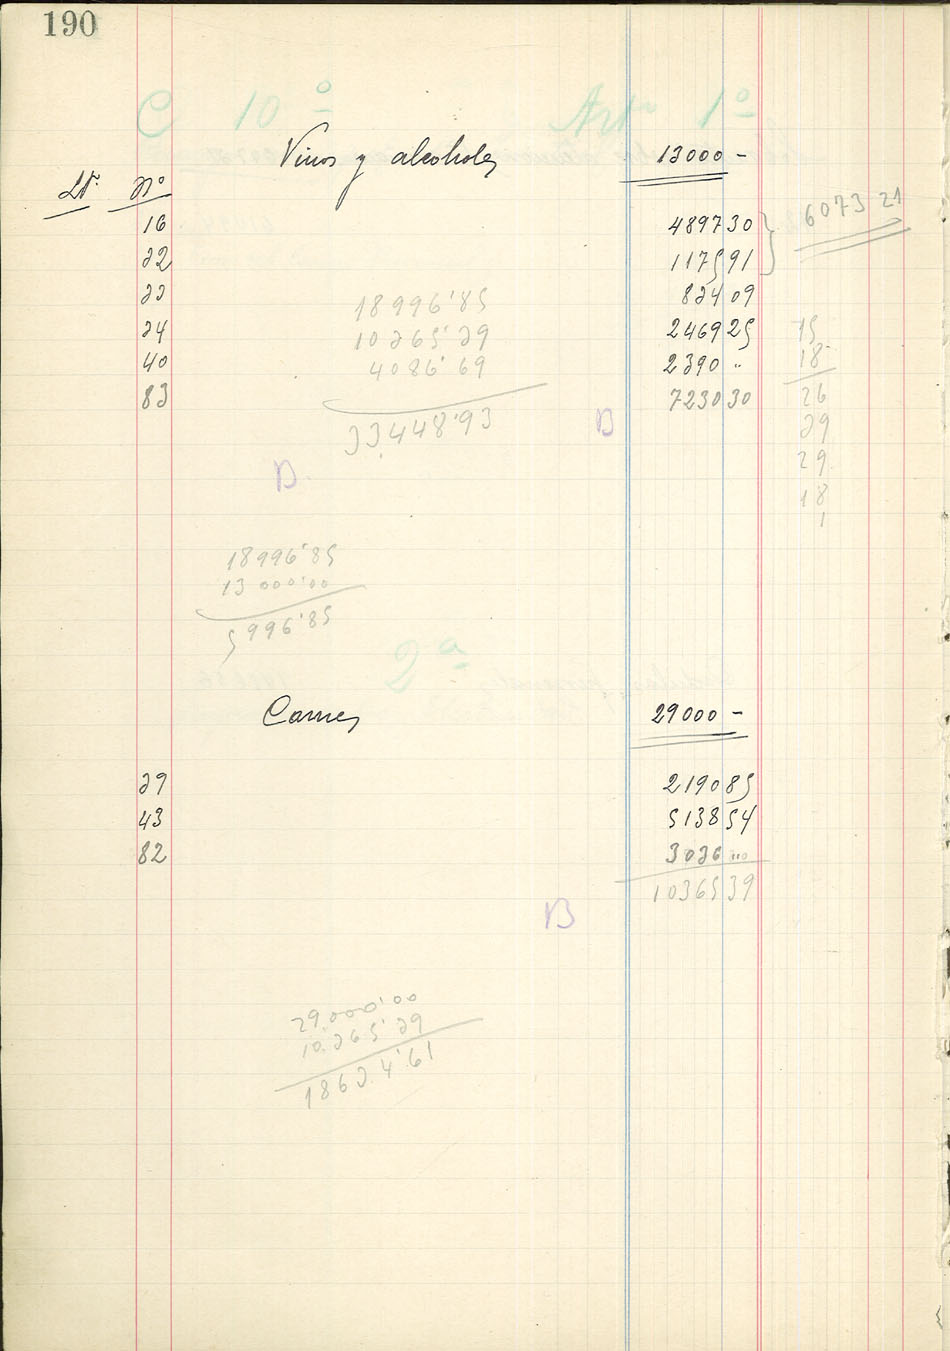 190
C 10º Artº 1º
Vinos y alcoholes 13000 -
Lº Nº
16 4897 30 6073 21
22 1175 91
23 18996'85 824 09
24 10265'29 2469 25 15
40 4086'69 2390 " 18
83 33448'93 7230 30 26
B 29
B. 29
18
1
18996'85
13000'00
5996'85
2ª
Carnes 29000 -
29 2190 85
43 5138 54
82 3036 "
10365 39
B
29.000'00
10.265'29
18634'61